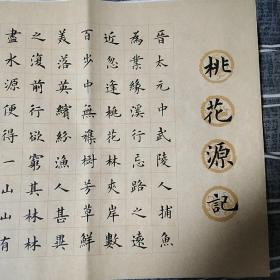 桃花源記
晉太元中武陵人捕魚
為業緣溪行忘路之遠
近忽逢桃花林夾岸數
百步中無襍樹芳草鮮
美落英繽紛漁人甚異
之復前行欲窮其林林
盡水源便得一山山有